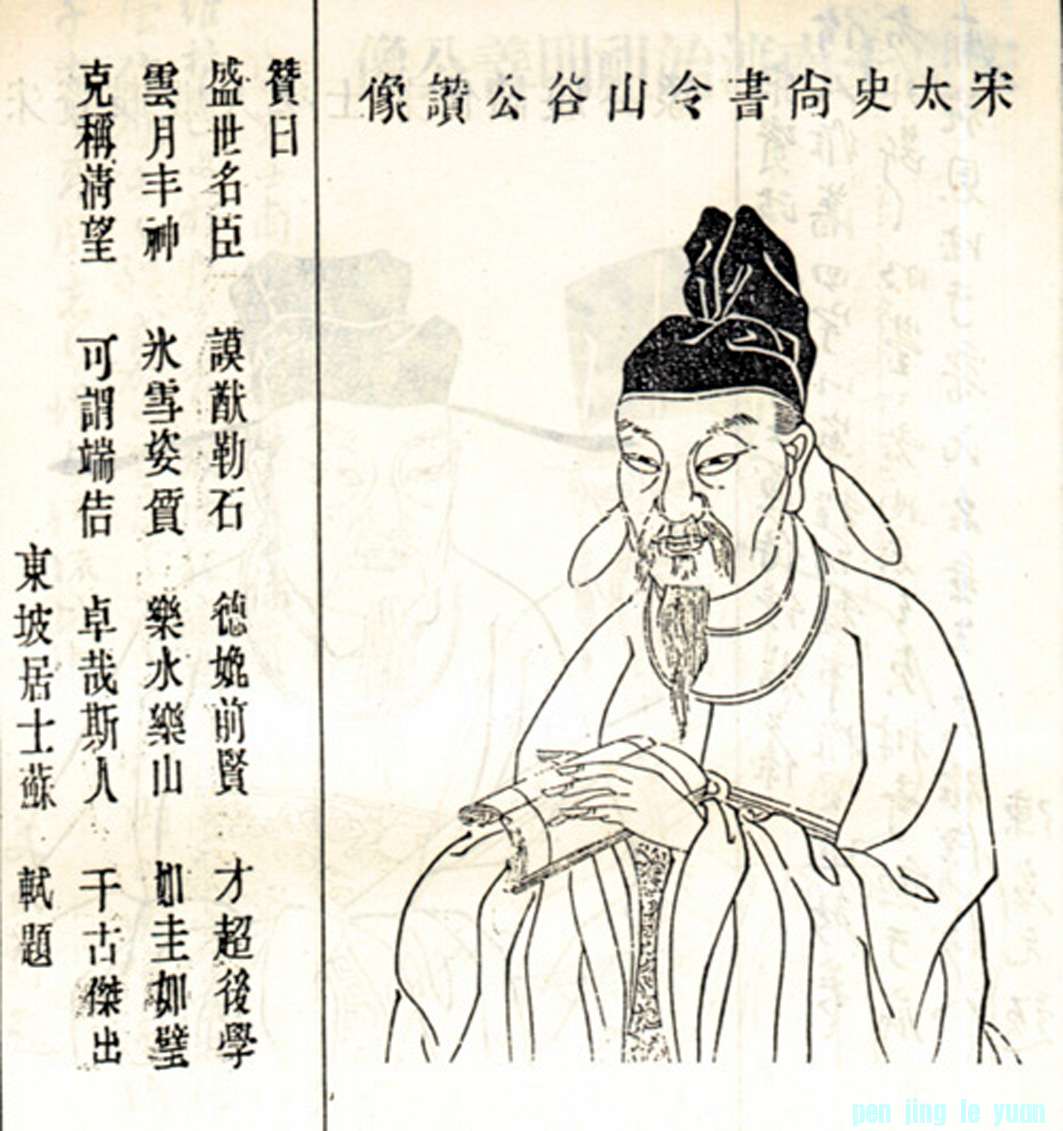 宋太史尚書令山谷公讃像
贊曰
盛世名臣 謨猷勒石 德媲前賢 才超後學
雲月丰神 氷雪姿質 樂水樂山 如圭如璧
克稱清望 可謂端佶 卓哉斯人 千古傑出
東坡居士蘇 軾題
pen jing le yuan